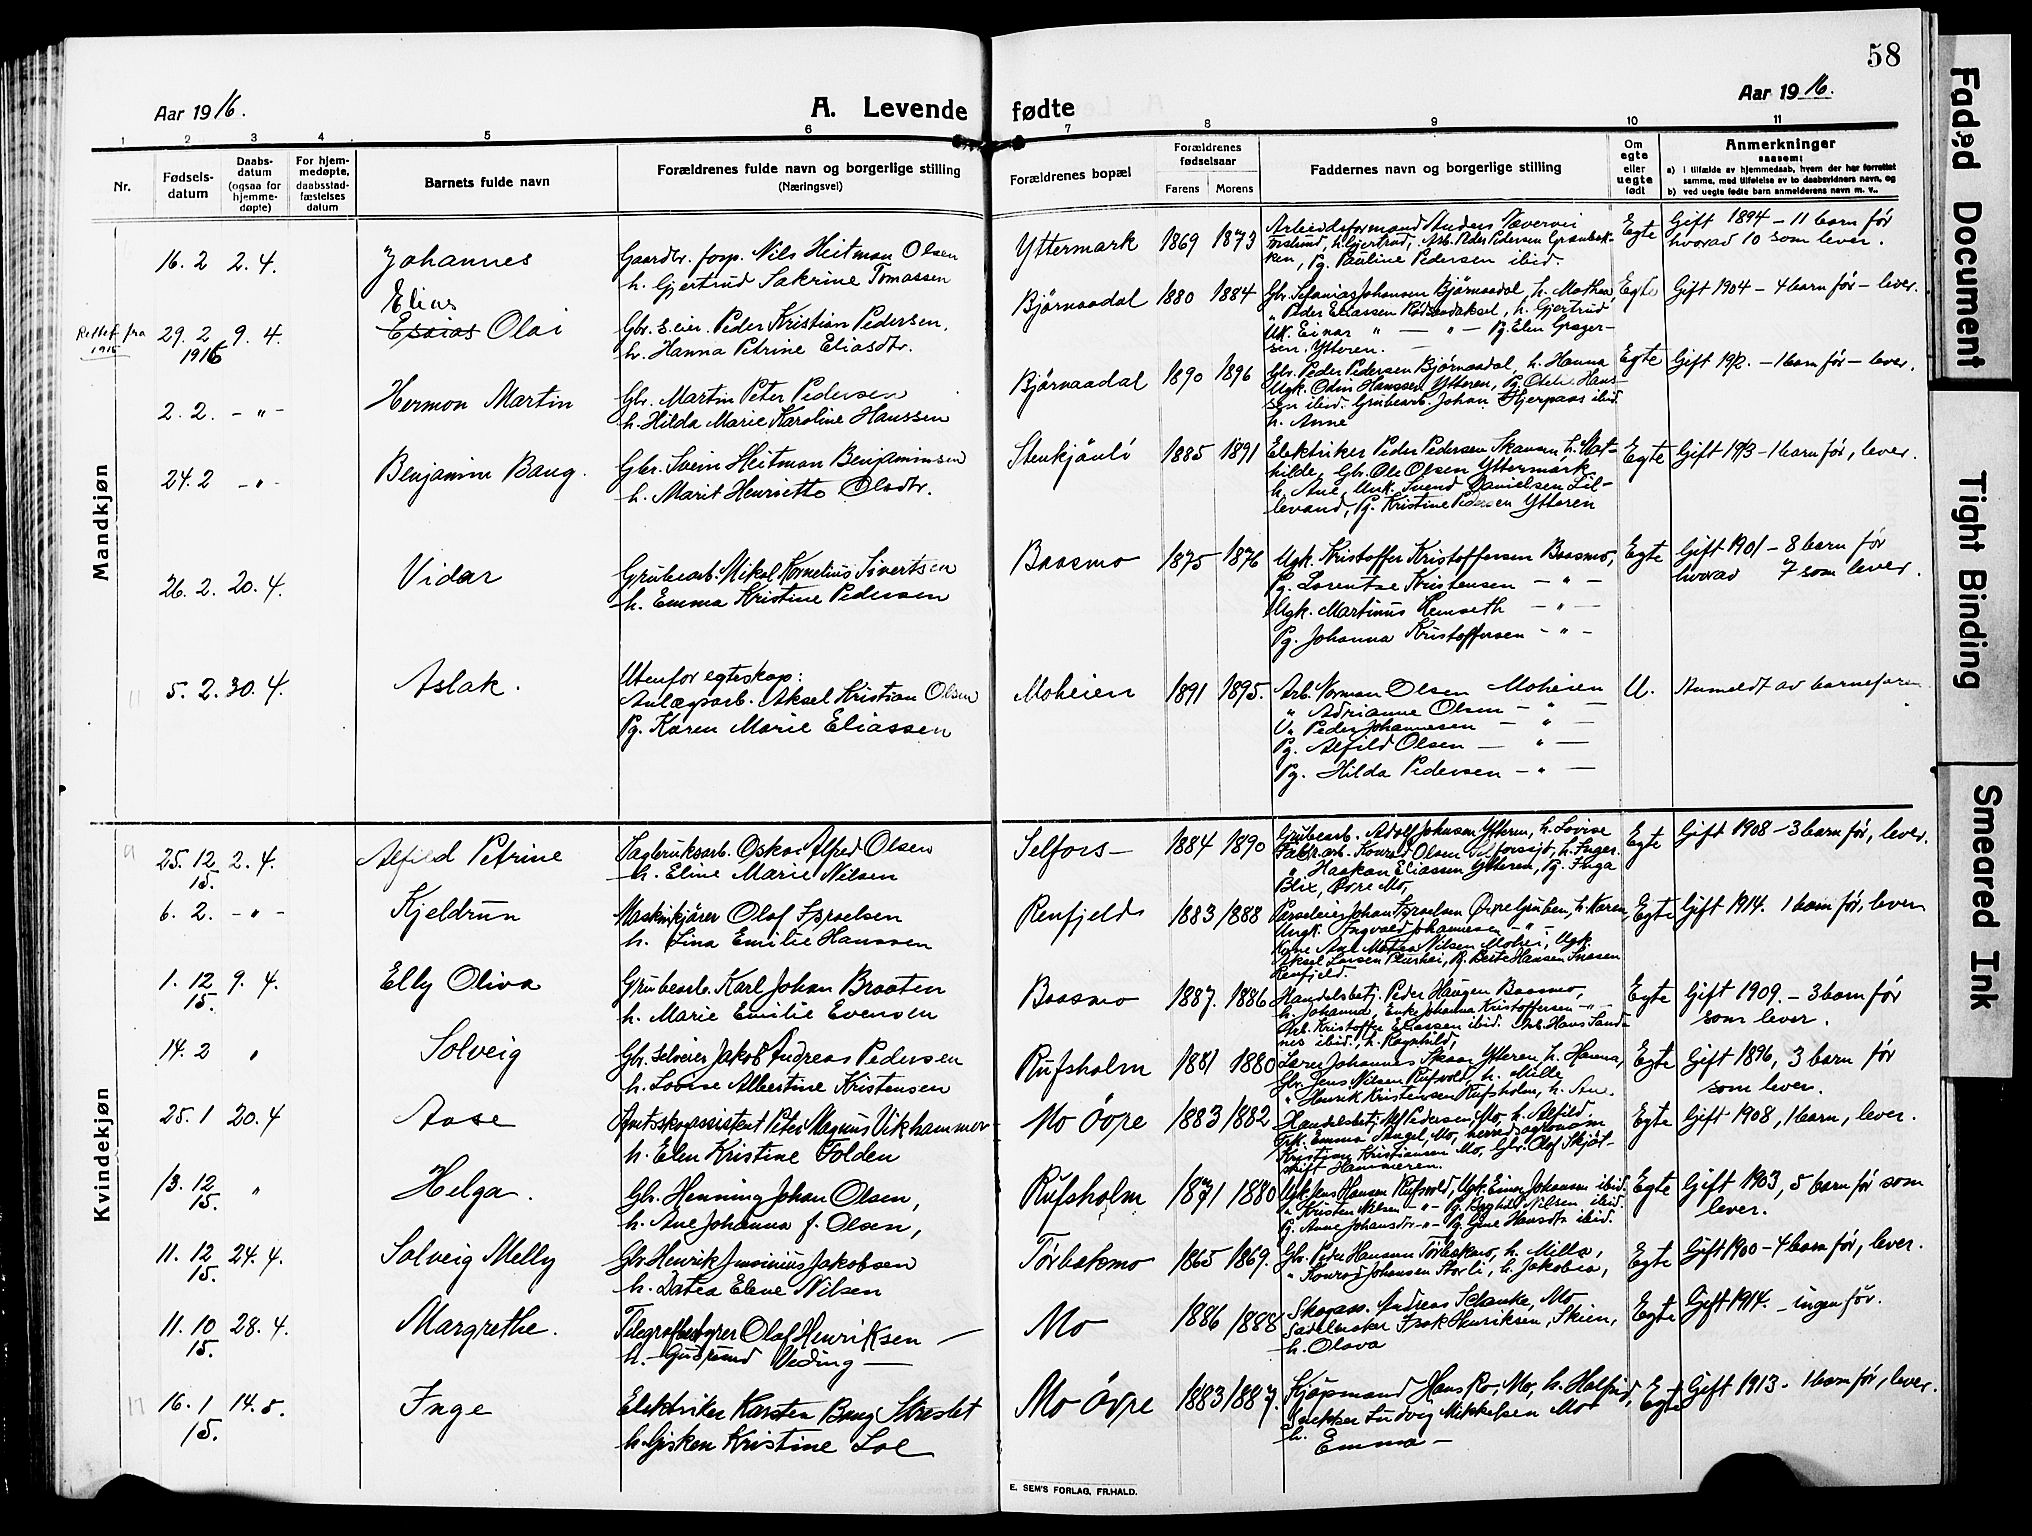 58
Aar 1916.
A. Levende fødte
Aar 1916.
1 2 3 4 5 6 7 8 9 10 11
Nr.
Fødsels-
datum
Daabs-
datum
(ogsaa for
hjemme-
døpte)
For hjem-
medøpte,
daabsstad-
fæstelses
datum
Barnets fulde navn
Forældrenes fulde navn og borgerlige stilling
(Næringsvei)
Forældrenes bopæl
Forældrenes
fødselsaar
Farens Morens
Faddernes navn og borgerlige stilling
Om
egte
eller
uegte
født
Anmerkninger
saasom:
a) i tilfælde av hjemmedaab, hvem der har forrettet
samme, med tilføielse av to daabsvidners navn, og
b) ved uegte fødte barn anmelderens navn m. v..
Mandkjøn
16. 2 2. 4.
Johannes
Gaardbr. forp. Nils Heitman Olsen
h. Gjertrud Sakrine Tomassen
Yttermark 1869 1873
Arbeidsformand Anders Navervei
h. Gjertrud, Arb. Peder Pedersen Grønbak-
ken, Pg. Pauline Pedersen ibid.
Egte
Gift 1894 - 11 barn før
hvorav 10 som lever.
Rettet fra
1915
29. 2 9. 4.
1916
Elias
Esaias Olai
Gbr. s. eier. Peder Kristian Pedersen.
h. Hanna Petrine Eliasdtr.
Bjørnaadal 1880 1884
Gbr. Sefanias Johansen Bjørnaadal, h. Mathea,
" Peder Eliassen, h. Gjertrud
Uk. Einar " — " — Pg. Elen Gregersen
sen. Ytteren.
Egte
Gift 1904 - 4 barn før - lever.
2. 2. - " -
Hermon Martin
Gbr. Martin Peter Pedersen
h. Hilda Marie Karoline Hanssen
Bjørnaadal 1890 1896
Gbr. Peder Pedersen Bjørnaadal, h. Hanna
Ugk. Odin Hanssen Ytteren, Pg. Hans-
sen ibid. Grubearb. Johan Hjerpaas ibid.
h. Anne
Egte
Gift 1912. - 1 barn før - lever.
24. 2 - " -
Benjamin Baug.
Gbr. Svein Heitman Benjaminsen
h. Marit Henriette Olsdtr.
Stenkjønli 1885 1891
Elektriker Peder Pedersen Skansen, h. Mat-
hilde, Gbr. Ole Olsen Yttermark
h. Ane, Ugk. Svend Danielsen Lil-
levand, Pg. Kristine Pedersen Ytteren
Egte
Gift 1913 - 1 barn før, lever.
26. 2. 20. 4.
Vidar
Grubearb. Nikol. Kornelius Sivertsen
h. Emma Kristine Pedersen
Baasmo 1875 1876
Ugk. Kristoffer Kristoffersen Baasmo,
Pg. Lorentse Kristensen — " —
Ugk. Martinus Remseth — " —
Pg. Johanna Kristoffersen — " —
Egte
Gift 1901 - 8 barn før
hvorav 7 som lever.
11
5. 2. 30. 4.
Aslak.
Utenfor egteskap:
Anlægsarb. Aksel Kristian Olsen
Pg. Karen Marie Eliassen
Moheien 1891 1895.
Arb. Norman Olsen Moheien
" Adrianne Olsen — " —
U. Peder Johannesen — " —
Pg. Alfild Olsen — " —
Pg. Hilda Pedersen — " —
U.
Anmeldt av barnefaren
Kvindekjøn
9
25. 12 2. 4.
15.
Alfild Petrine
Sagbruksarb. Oskar Alfred Olsen
h. Eline Marie Nilsen
Selfors — 1884 1890
Grubearb. Adolf Johnsen Ytteren, h. Lovise
Fabr.arb. Konrad Olsen Selfors, h. Inger
" Haakon Eliassen Ytteren, Pg. Inga
Blix, Øvre Mo,
Egte
Gift 1908 - 3 barn før, lever.
6. 2. - " -
Kjeldrun
Maskinkjører Olaf Israelsen
h. Lina Emilie Hanssen
Renfjeld 1883 1888
Johan Israelsen Øvre Gruben, h. Karen,
Ungk. Ingvald Johannesen - " -
Kone Ane Matea Nilsen Mohei, Ugk.
Aksel Larsen, Pg. Berte Hansen
Renfjeld.
Egte
Gift 1914. 1 barn før, lever
1. 12 9. 4.
15.
Elly Oliva
Grubearb. Karl Johan Braaten
h. Marie Emilie Evensen
Baasmo 1887. 1886
Handelsbetj. Peder Haugen Baasmo,
h. Johanna, Enke Johanna Kristoffersen — " —
Arb. Kristoffer Eliassen ibid. Arb. Hans Sand-
nes ibid., h. Ragnhild,
Egte
Gift 1909. - 3 barn før
som lever.
14. 2 "
Solveig
Gbr. Selveier Jakob Andreas Pedersen
h. Lovise Albertine Kristensen
Rufsholm 1881 1880
Lærer Johannes Skaar Ytteren, h. Hanna,
Gbr. Jens Nilsen Rufvold, h. Mille
" Henrik Kristensen Rufsholm, h. An.
Egte
Gift 1896, 3 barn før
som lever.
25. 1 20. 4
Aase
Amtsskogassistent Peter Magnus Vikhammer
h. Elen Kristine Folden
Mo Övre 1883 1882
Handelsbetj. Pedersen Mo, h. Alfild.
Frk. Emma Mo, herredsagronom
Kristian Kristiansen Mo, Gbr. Olaf
Hammeren.
Egte
Gift 1908, 1 barn, lever.
13. 12 "
15.
Helga.
Gbr. Henning Johan Olsen,
h. Ane Johanna f. Olsen,
Rufsholm 1871 1880
Ugk. Jens Hansen Rufvold, Ugk. Einar Johansen ibid.
" Kristen Nilsen — " — Pg. Borghild Nilsen ibid.
Pg. Anne Johansdtr — " — Pg. Gine Hansdtr ibid.
Egte
Gift 1903, 5 barn før som
lever.
11. 12 24. 4.
15.
Solveig Melly
Gbr. Henrik Jakobsen
h. Datea Elene Nilsen
Tørbekmo 1865 1869.
Gbr. Peder Hansen Tørbekmo, h. Milla,
" Konrad Johansen Storli, h. Jakobia,
Egte
Gift 1900 - 4 barn før, lever.
11. 10 28. 4.
15.
Margrethe.
Telegrafbestyrer Olaf Henriksen —
h. Gudrund Veding —
Mo 1886 1888
Skogass. Andreas Schanke, Mo
Sadelmaker Isak Henriksen, Skien,
h. Olava
Egte
Gift 1914. - ingen før.
17
16. 1 14. 5.
15.
Inge
Elektriker Karsten Baug Strædet
h. Gisken Kristine Loe
Mo Övre 1883 1887.
Kjøpmand Hans Ro, Mo, h. Halfrid,
Snekker Ludvig Mikkelsen Mo
h. Emma —
Egte
Gift 1913 - 1 barn før, lever.
E. SEM'S FORLAG, FR.HALD.
Faded Document
Tight Binding
Smeared Ink